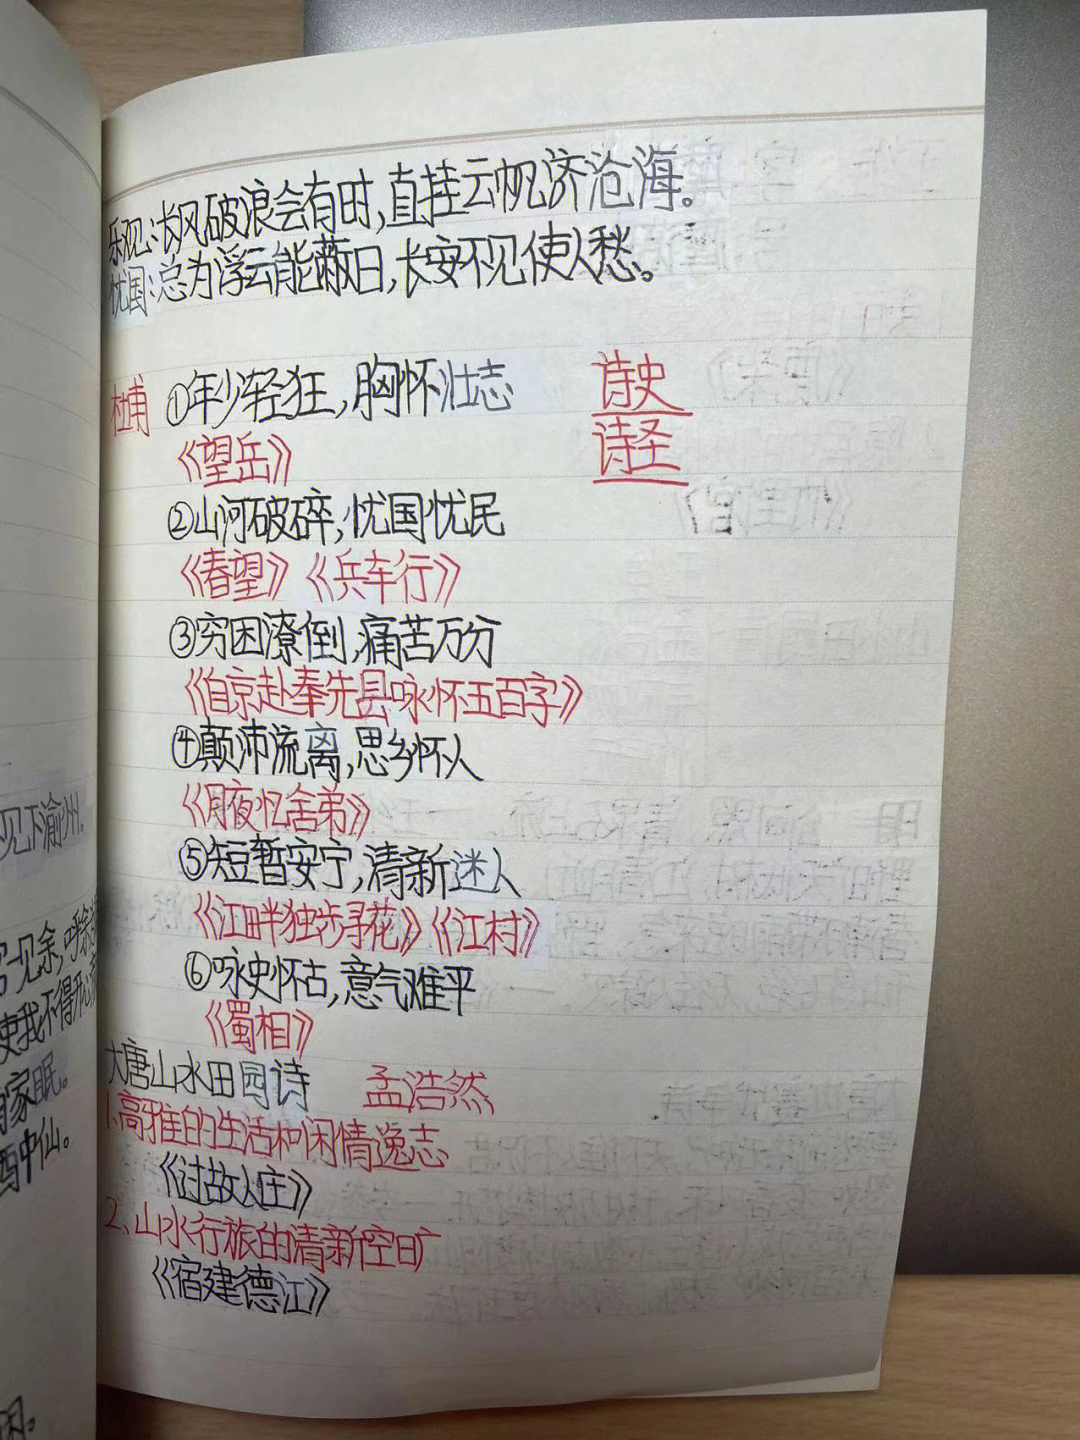 乐观:长风破浪会有时,直挂云帆济沧海。
忧国:总为浮云能蔽日,长安不见使人愁。
杜甫 ①年少轻狂,胸怀壮志 诗史
《望岳》 诗圣
②山河破碎,忧国忧民
《春望》《兵车行》
③穷困潦倒,痛苦万分
《自京赴奉先县咏怀五百字》
④颠沛流离,思乡怀人
《月夜忆舍弟》
⑤短暂安宁,清新迷人
《江畔独步寻花》《江村》
⑥咏史怀古,意气难平
《蜀相》
大唐山水田园诗 孟浩然
1.高雅的生活和闲情逸志
《过故人庄》
2、山水行旅的清新空旷
《宿建德江》
见下渝州。
一见余,呼余
使我不得开心
家眠。
酒中仙。